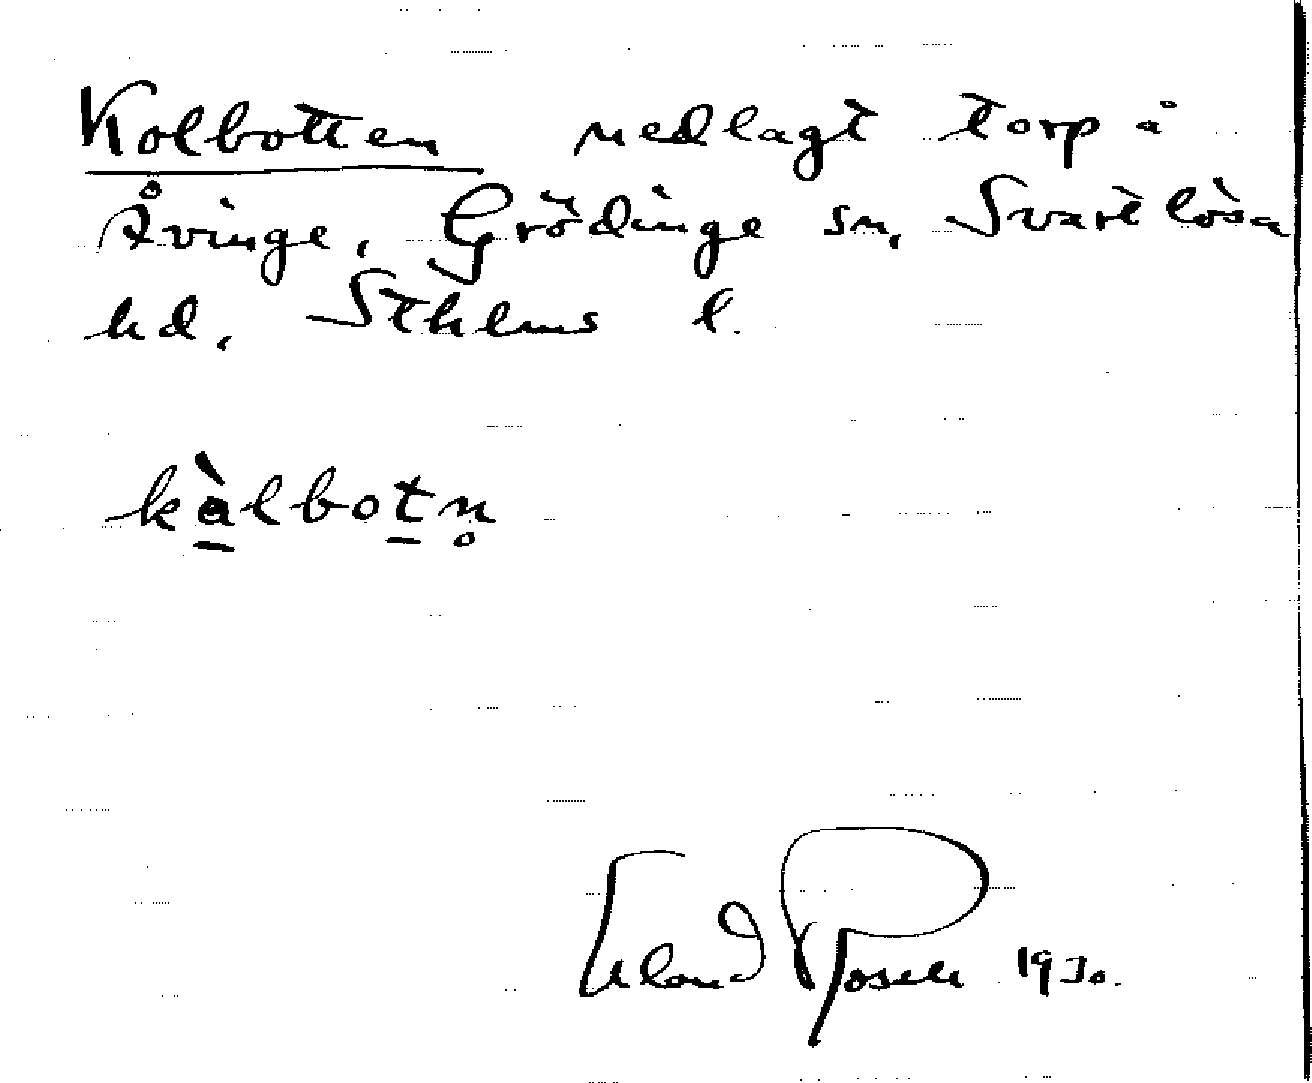 Kolbotten nedlagt torp å
Åvinge, Grödinge sn, Svartlösa
hd, Sthlms l.
kàlbotn̥
1930.